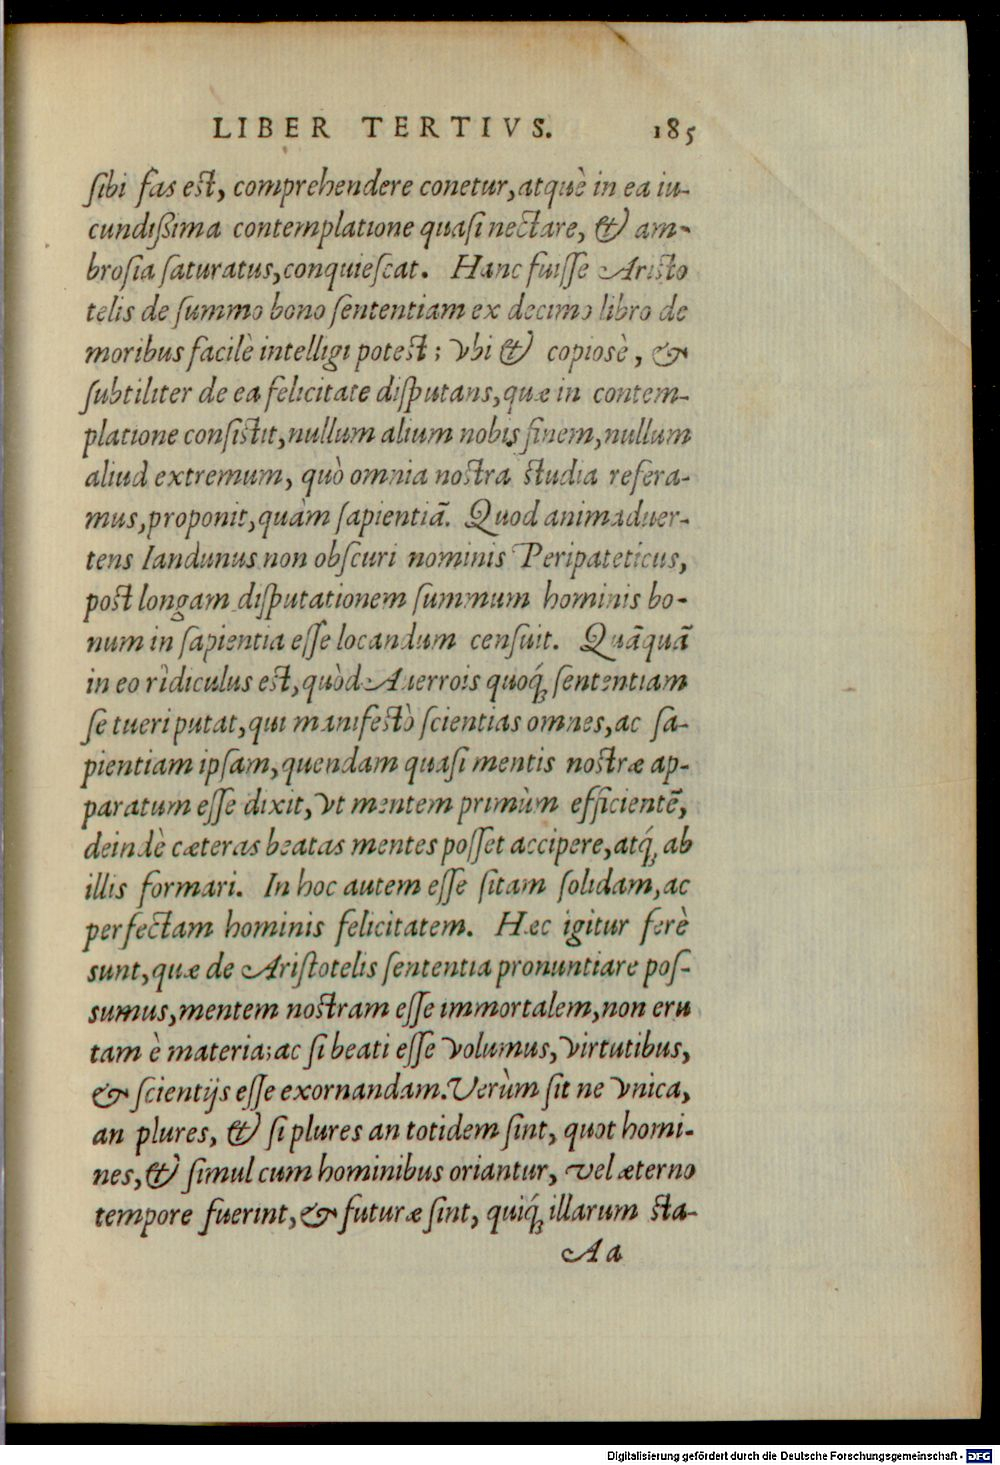 LIBER TERTIVS. 185
ſibi fas est, comprehendere conetur, atquè in ea iu-
cundißima contemplatione quaſi nectare, & am-
broſia ſaturatus, conquieſcat. Hanc fuiſſe Aristo
telis de ſummo bono ſententiam ex decimo libro de
moribus facilè intelligi potest; vbi & copiosè, &
ſubtiliter de ea felicitate diſputans, quæ in contem-
platione conſistit, nullum alium nobis finem, nullum
aliud extremum, quò omnia nostra studia refera-
mus, proponit, quàm ſapientiā. Quod animaduer-
tens Iandunus non obſcuri nominis Peripateticus,
post longam diſputationem ſummum hominis bo-
num in ſapientia eſſe locandum cenſuit. Quāquā
in eo ridiculus est, quòd Auerrois quoq́; ſententiam
ſe tueri putat, qui manifestò ſcientias omnes, ac ſa-
pientiam ipſam, quendam quaſi mentis nostræ ap-
paratum eſſe dixit, vt mentem primùm efficientē,
deindè cæteras beatas mentes poſſet accipere, atq́; ab
illis formari. In hoc autem eſſe ſitam ſolidam, ac
perfectam hominis felicitatem. Hæc igitur ferè
sunt, quæ de Ariſtotelis ſententia pronuntiare poſ-
sumus, mentem nostram eſſe immortalem, non eru
tam è materia; ac ſi beati eſſe volumus, virtutibus,
& ſcientijs eſſe exornandam. Verùm ſit ne vnica,
an plures, & ſi plures an totidem ſint, quot homi-
nes, & ſimul cum hominibus oriantur, vel æterno
tempore fuerint, & futuræ ſint, quiq́; illarum sta-
Aa
Digitalisierung gefördert durch die Deutsche Forschungsgemeinschaft - DFG